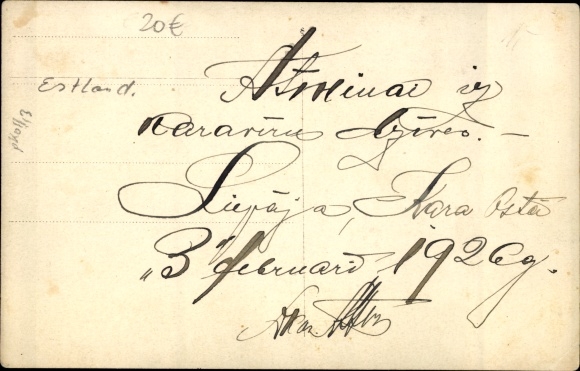 20€
Estland.
Atminai iz
karavīru dzīves. –
Liepāja, Kara Ostā
"3" februarī 1926g.